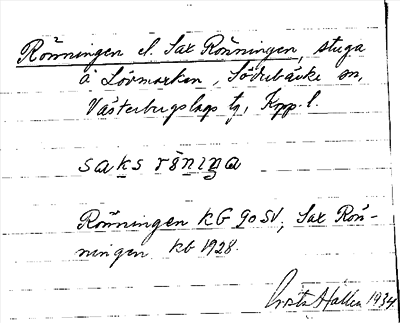 Rönningen el. Sax Rönningen, stuga
å Lövmarken, Söderbärke sn,
Västerbergslags tg, Kopp. l.
saks röniŋa
Rönningen KG 90 SV, Sax Rön-
ningen KG 1928.
Gösta Hallén 1934